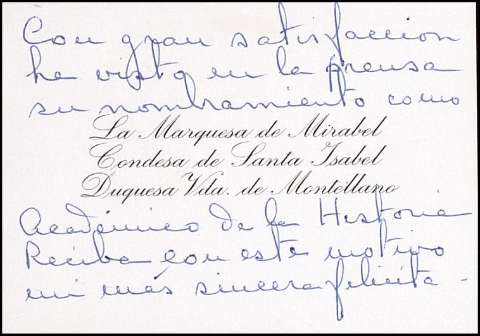 Con gran satisfaccion
he visto en la prensa
su nombramiento como
La Marquesa de Mirabel
Condesa de Santa Isabel
Duquesa Vda. de Montellano
Académico de la Historia
Reciba con este motivo
mi más sincera felicita -